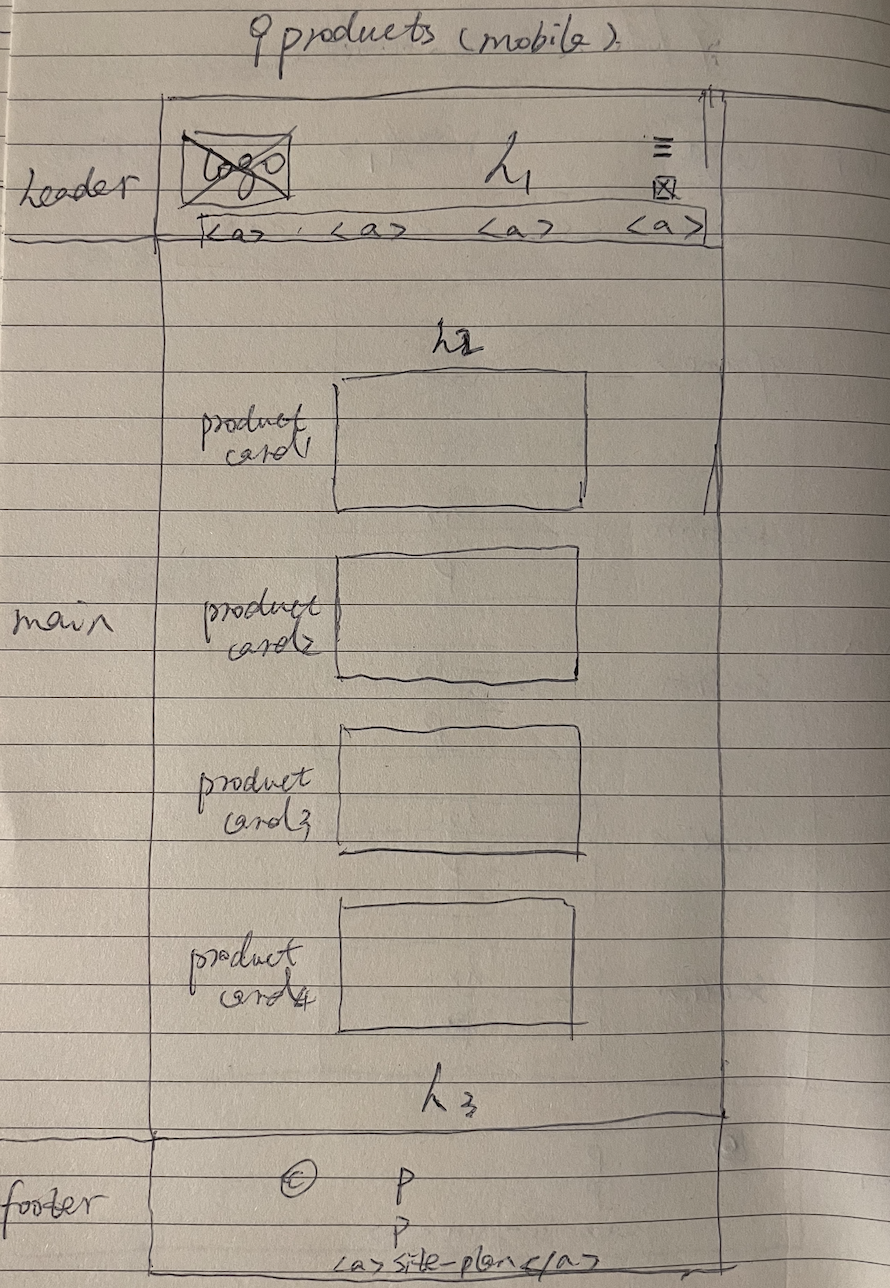 9 products (mobile).
header
logo
h1
<a> <a> <a> <a>
h2
product
card1
main
product
card2
product
card3
product
card4
h3
footer
© P
P
<a> site-plan </a>